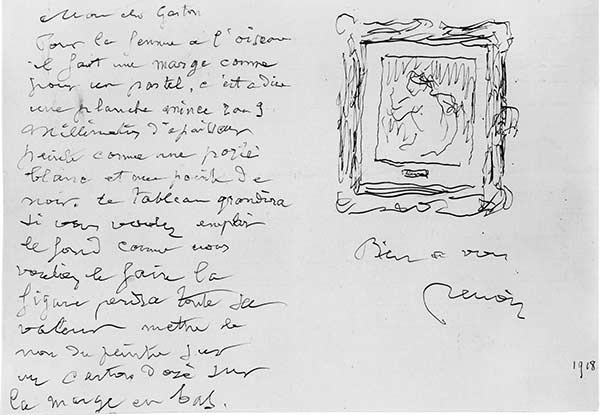 Mon cher Gaston
Pour la femme a l'oiseau
il faut une marge comme
pour un pastel, c'est a dire
une planche mince 2 ou 3
millimetres d'epaisseur
peinte comme une
blanc et une pointe de
noir. le tableau grandira
si vous voulez emplir
le fond comme vous
vouliez le faire la
figure perdra toute sa
valeur mettre le
nom du peintre sur
un carton doré sur
la marge en bas.
Bien a vous
Renoir
1918